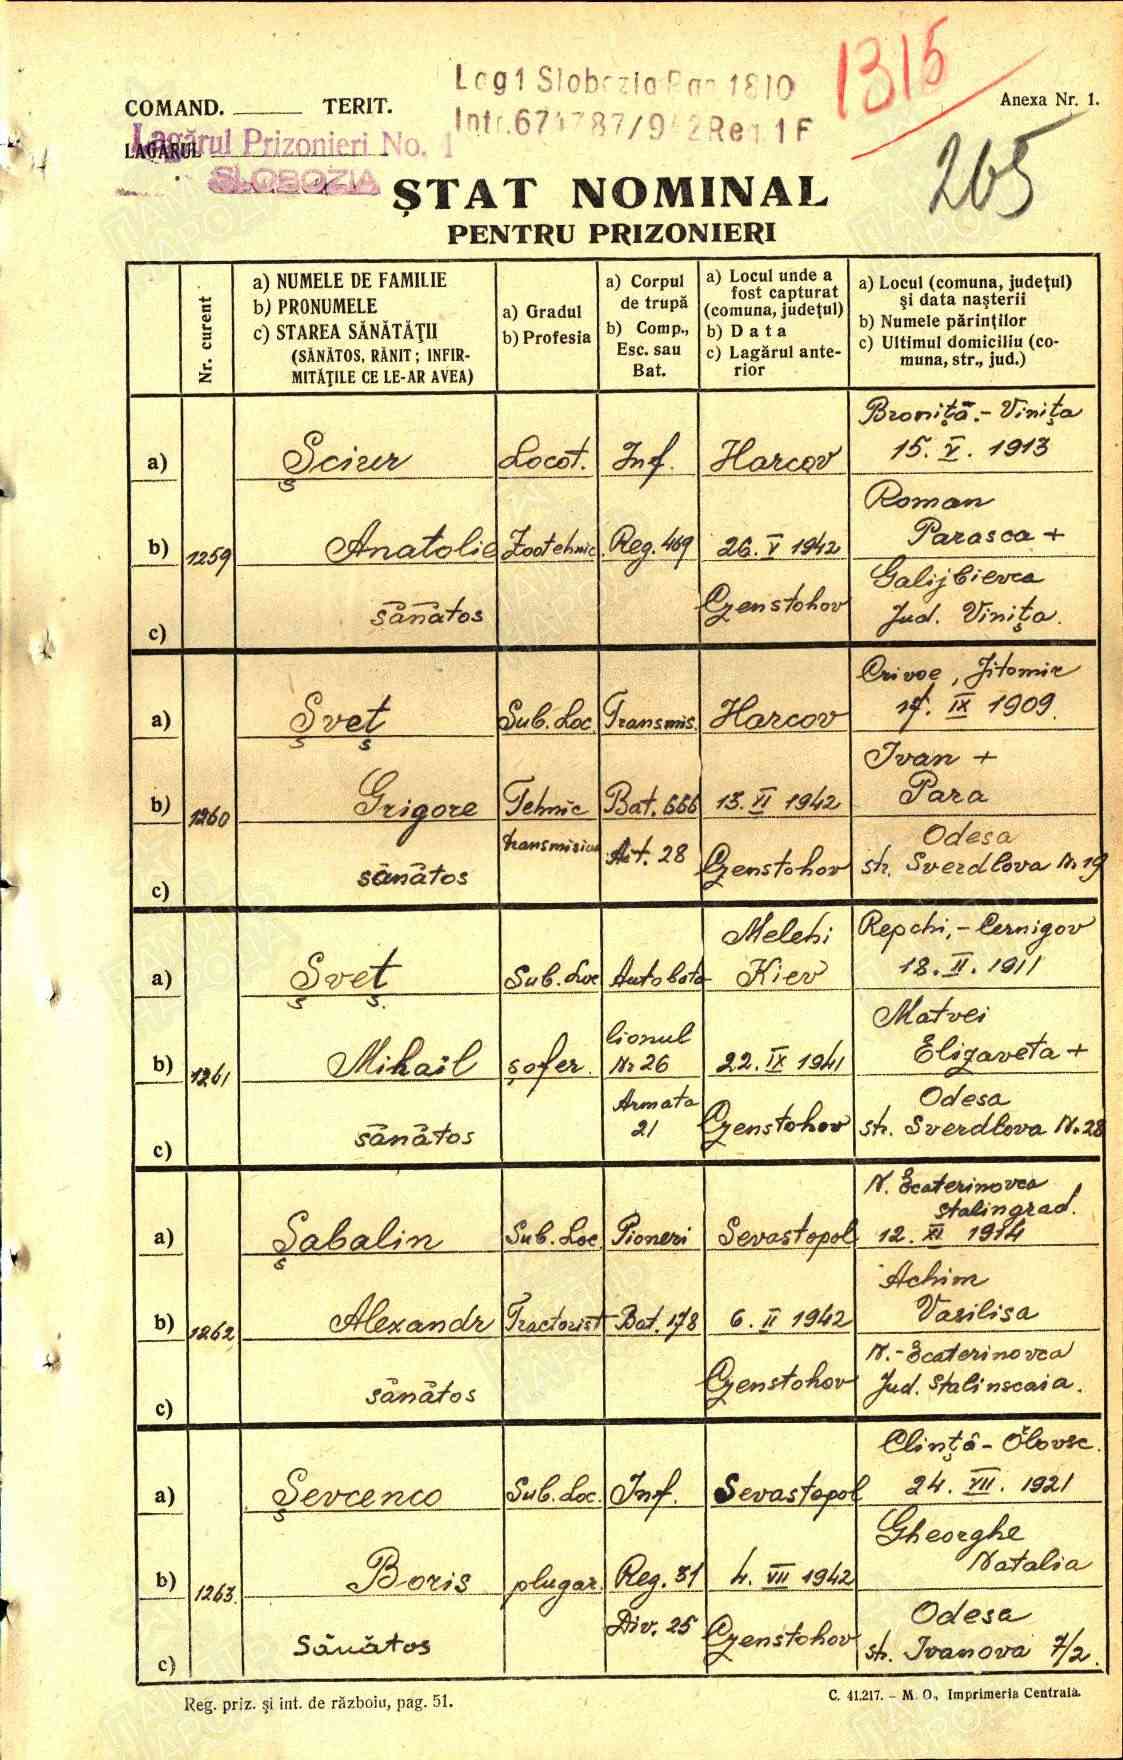 Lag 1 Slobozia Pag 1810
1315
Intr. 674787/942 Reg. 1 F
COMAND. TERIT.
Anexa Nr. 1.
LAGĂRUL
Lagărul Prizonieri No. 1
SLOBOZIA
265
ȘTAT NOMINAL
PENTRU PRIZONIERI
Nr. curent
a) NUMELE DE FAMILIE
b) PRONUMELE
c) STAREA SĂNĂTĂȚII
(SĂNĂTOS, RĂNIT; INFIR-
MITĂȚILE CE LE-AR AVEA)
a) Gradul
b) Profesia
a) Corpul
de trupă
b) Comp.,
Esc. sau
Bat.
a) Locul unde a
fost capturat
(comuna, județul)
b) Data
c) Lagărul ante-
rior
a) Locul (comuna, județul)
și data nașterii
b) Numele părinților
c) Ultimul domiciliu (co-
muna, str., jud.)
a) Șciur Locot. Inf. Harcov Broniță.- Vinița
15. V. 1913
b) 1259 Anatolie Zootehnic. Reg. 469 26. V 1942 Roman
Parasca +
c) sănătos Czenstohov Galijbievca
Jud. Vinița.
a) Șveț Sub. Loc. Transmis. Harcov Crivoe, Jitomir
17. IX 1909.
b) 1260 Grigore Tehnic Bat. 666 13. VI 1942 Ivan +
Para
c) sănătos transmisiun 28 Czenstohov Odesa
str. Sverdlova Nr 19
a) Șveț Sub. Loc Autobata Melehi
Kiev Repchi,- Cernigov
18. II. 1911
b) 1261 Mihail șofer. lionul
Nr 26 22. IX 1941 Matvei
Elizaveta +
c) sănătos Armata
21 Czenstohov Odesa
str. Sverdlova Nr. 28
a) Șabalin Sub. Loc. Pioneri Sevastopol N. Ecaterinovca
Stalingrad.
12. XI 1914
b) 1262 Alexandr Tractorist Bat. 178 6. II 1942 Achim
Vasilisa
c) sănătos Czenstohov N.- Ecaterinovca
Jud. Stalinscaia.
a) Șevcenco Sub. Loc. Inf. Sevastopol Clință - Olovsc.
24. VII. 1921
b) 1263. Boris plugar. Reg. 31 4. VII 1942 Gheorghe
Natalia
c) Sănătos Div. 25 Czenstohov Odesa
str. Ivanova 7/2.
Reg. priz. și int. de războiu, pag. 51.
C. 41.217. - M. O., Imprimeria Centrala.